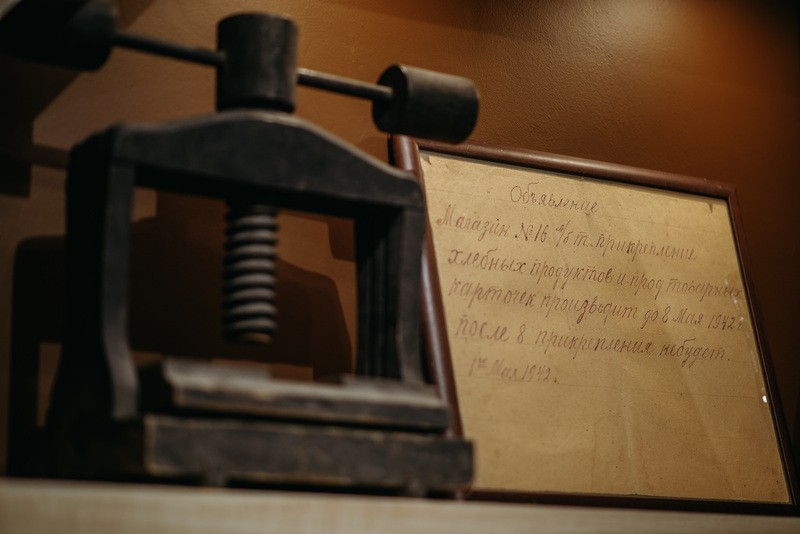 Объявление
Магазин №16 а/б т. прикрепление
хлебных продуктов и прод товарных
карточек производит до 8 Мая 1942 г.
после 8 прикрепления небудет.
1го Мая 1942 г.